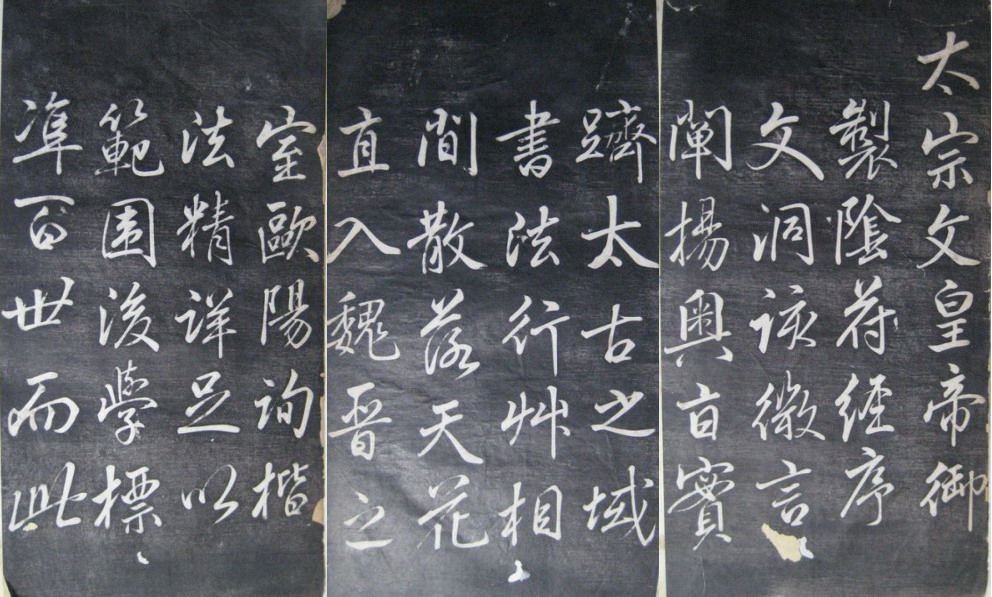 太宗文皇帝御
製陰符經序
文洞該微言
闡揚奧旨實
躋太古之域
書法行艸相
間散落天花
直入魏晉之
室歐陽詢楷
法精詳足以
範围後學標
準百世而此